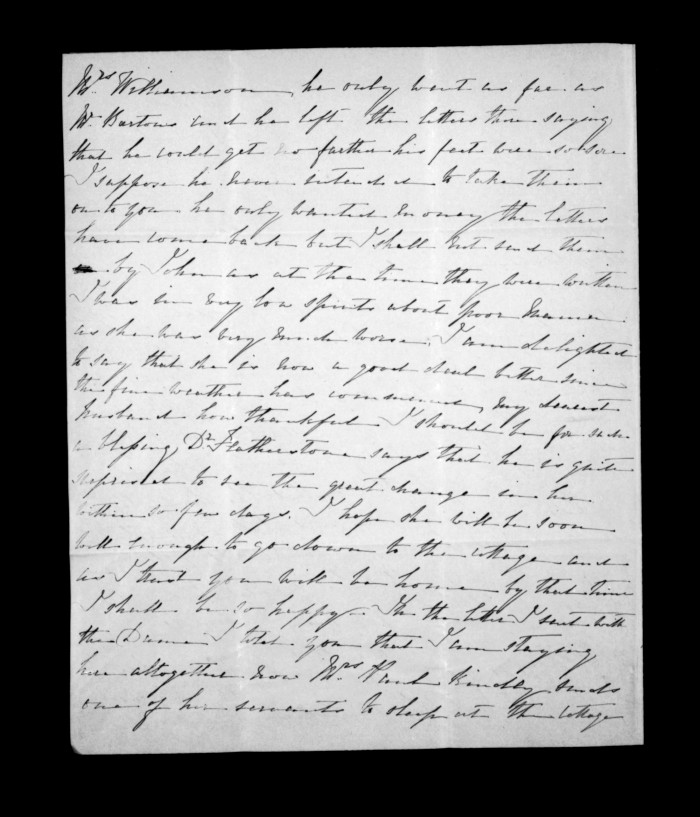 Mrs Williamson, he only went as far as
Mr Bartons and he left the letters there saying
that he could get no farther his feet were so sore
I suppose he never intended to take them
on to you he only wanted money the letters
have come back but I shall not send them
by John as at the time they were written
I was in very low spirits about poor Mama
as she was very much worse. I am delighted
to say that she is now a good deal better since
the fine weather has commenced, my dearest
Husband how thankful I should be for such
a blessing, Dr Featherstone says that he is quite
surprised to see the great change in her
within so few days. I hope she will be soon
well enough to go down to the cottage and
as I trust you will be home by that time
I shall be so happy. In the letter I sent with
the I told you that I am staying
here altogether now Mrs kindly sends
one of her servants to sleep at the cottage